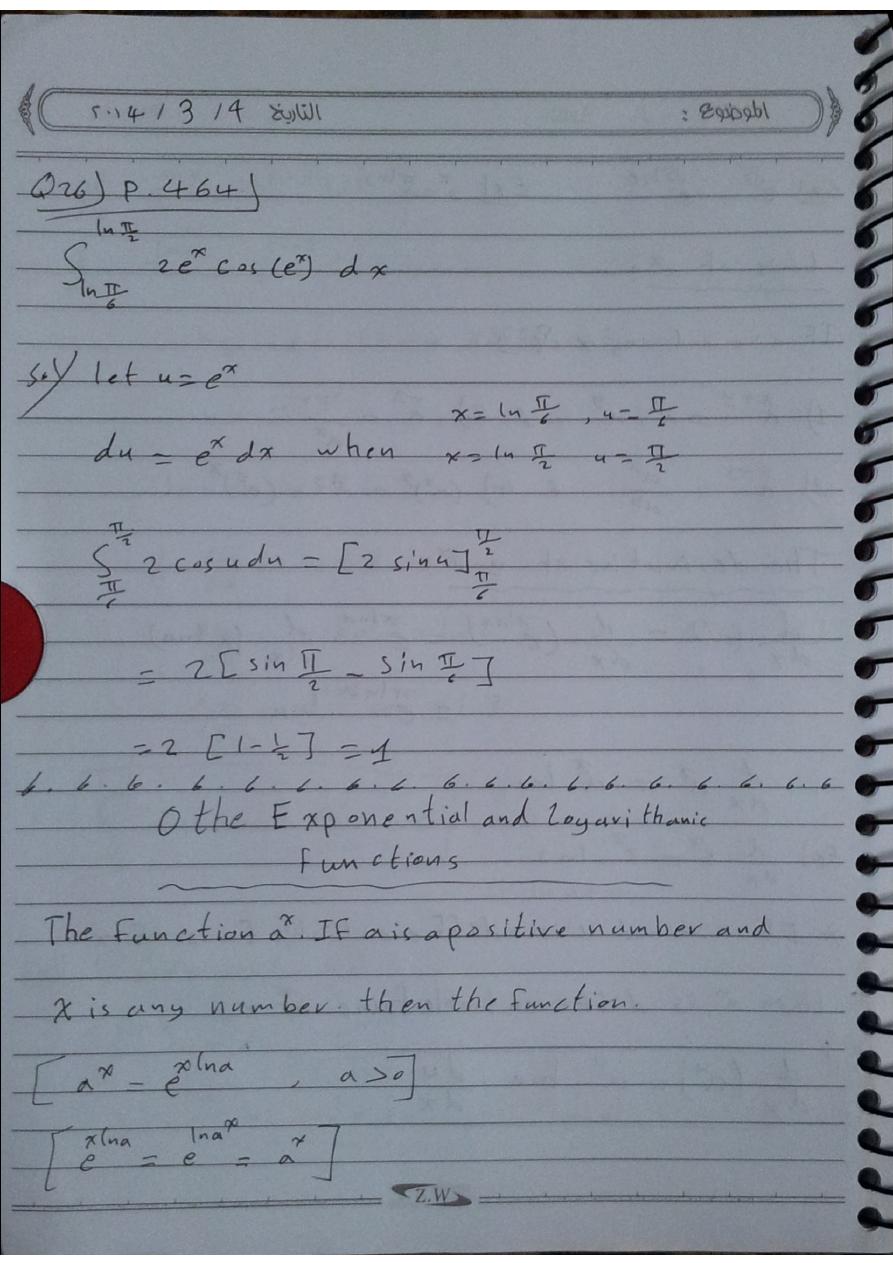 الموضوع : التاريخ ٢٠١٤ / 3 / 4
Q26) P. 464
∫_{ln π/6}^{ln π/2} 2e^x cos(e^x) dx
Sol/ let u = e^x
x = ln π/6 , u = π/6
du = e^x dx when x = ln π/2 u = π/2
∫_{π/6}^{π/2} 2 cos u du = [2 sin u]_{π/6}^{π/2}
= 2 [sin π/2 - sin π/6]
= 2 [1 - 1/2] = 1
O the Exponential and Logarithanic
functions
The function a^x. If a is a positive number and
x is any number. then the function.
[a^x = e^{x ln a} , a > 0]
[e^{x ln a} = e^{ln a^x} = a^x]
Z.W